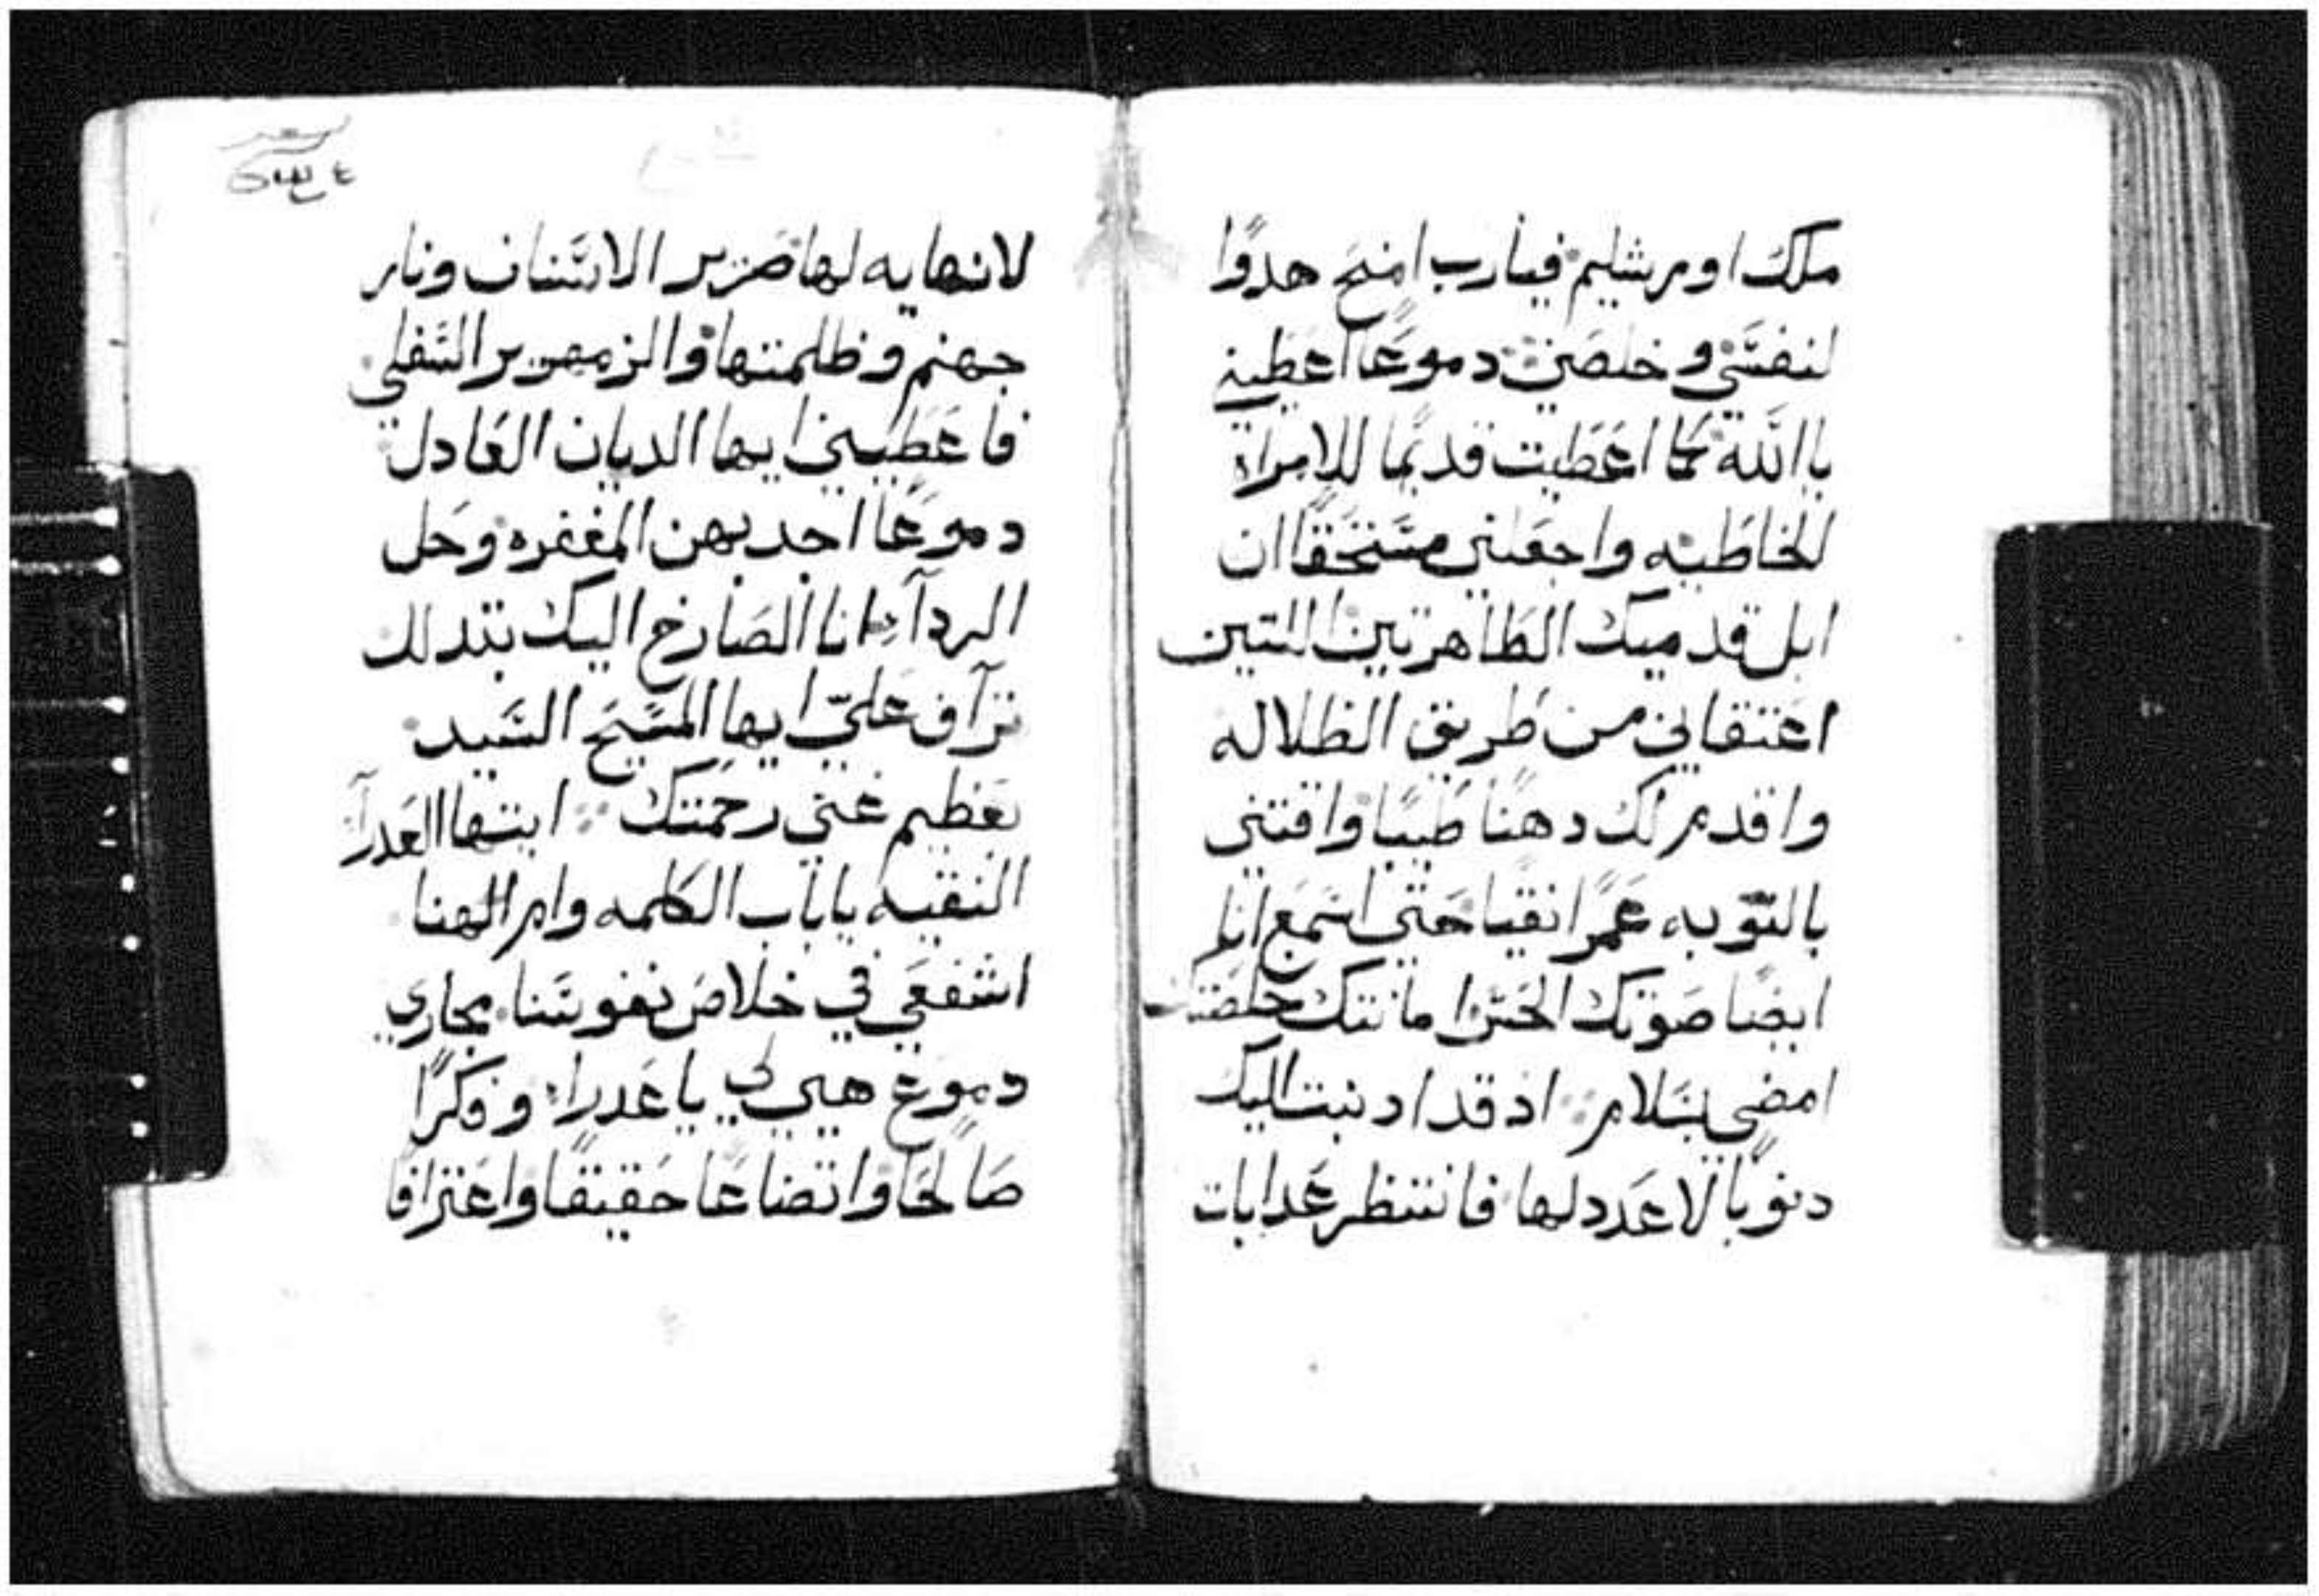 ملك اورشليم فيارب امنح هدوًا
لنفسي وخلصني دموعًا اعطيني
ياالله كما اعطيت قديمًا للامراة
الخاطيه واجعلني مستحقًا ان
ابل قدميك الطاهرتين اللتين
اعتقاني من طريق الظلاله
واقدم لك دهنًا طيبًا واقتني
بالتوبه عمرًا نقيا حتي اسمع انا
ايضًا صوتك الحسن امانتك خلصتك
امضي بسلام اد قد ادنبت اليك
دنوبًا لا عدد لها فانتظر عدابات
لانهايه لها صرير الاسنان ونار
جهنم وظلمتها والزمهرير السفلي
فاعطيني ايها الديان العادل
دموعًا اجد بهن المغفره وحل
الردآء انا الصارخ اليك بتدلل
ترآف عليّ ايها المسيح السيد
بعظيم غني رحمتك ايتها العدرآ
النقيه ياباب الكلمه وام الهنا
اشفعي في خلاص نفوسنا مجاري
دموع هبي لي يا عدراء وفكرًا
صالحًا واتضاعًا حقيقًا واعترافًا